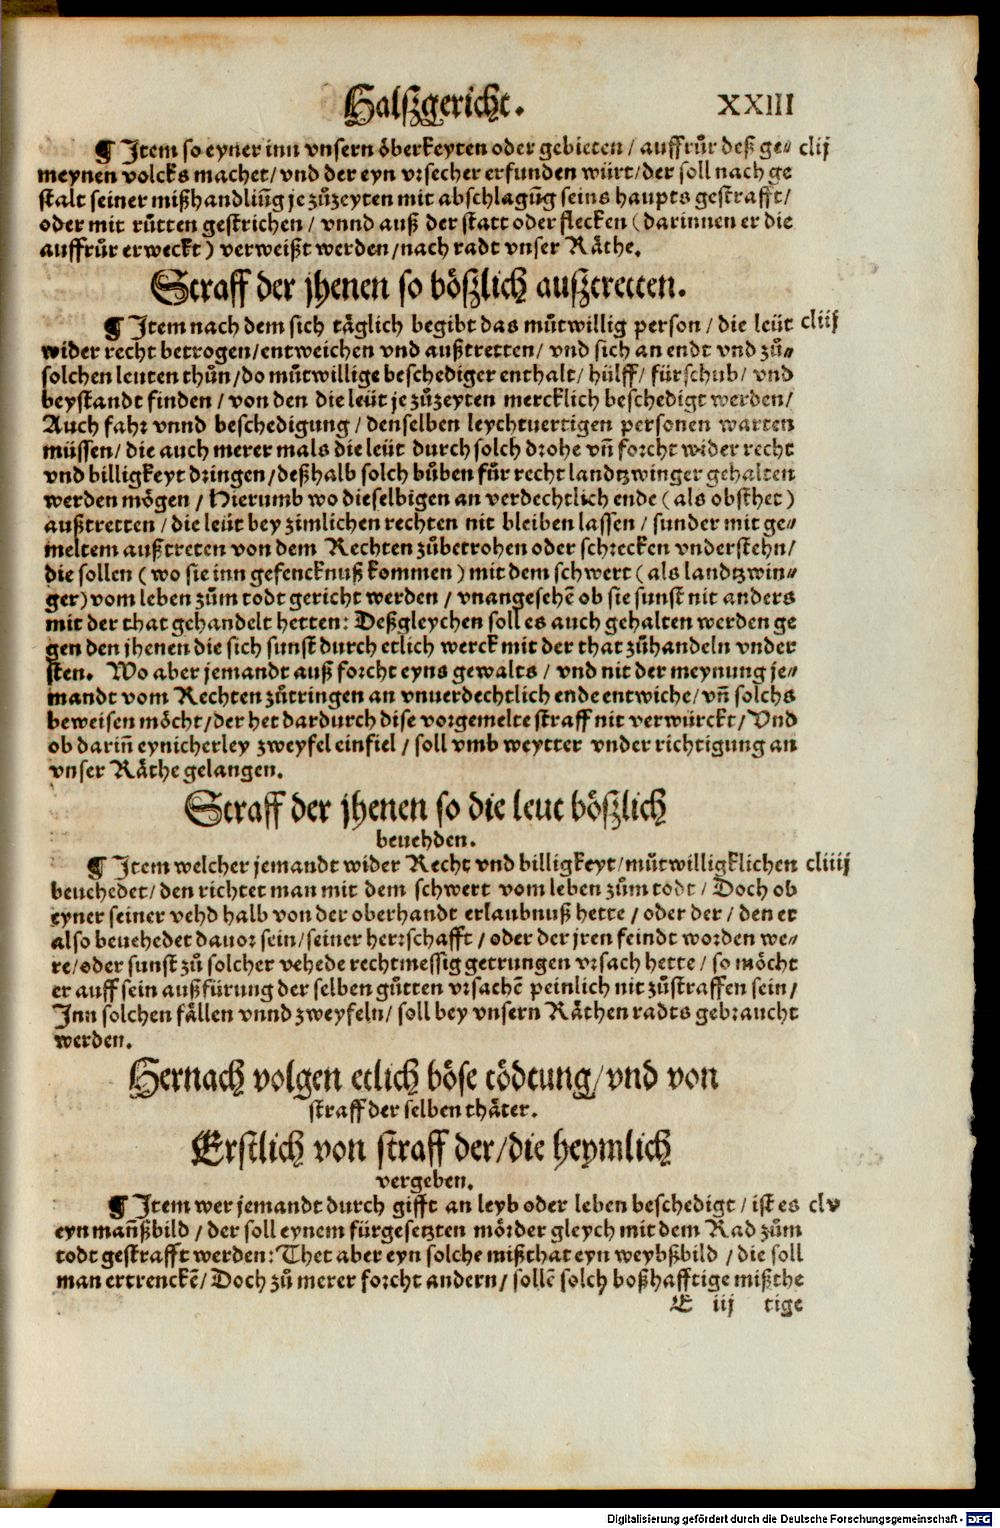 Halszgericht. XXIII
¶ Item so eyner inn vnsern öberkeyten oder gebieten / auffrůr deß ge⸗ clij
meynen volcks machet / vnd der eyn vrsecher erfunden würt / der soll nach ge
stalt seiner mißhandlũg je zůzeyten mit abschlagũg seins haupts gestrafft /
oder mit růtten gestrichen / vnnd auß der statt oder flecken (darinnen er die
auffrůr erweckt) verweißt werden / nach radt vnser Räthe.
Straff der jhenen so bößlich außtretten.
¶ Item nach dem sich täglich begibt das můtwillig person / die leüt cliij
wider recht betrogen / entweichen vnd außtretten / vnd sich an endt vnd zů⸗
solchen leuten thůn / do můtwillige beschediger enthalt / hülff / fürschub / vnd
beystandt finden / von den die leüt je zůzeyten mercklich beschedigt werden /
Auch fahr vnnd beschedigung / denselben leychtuertigen personen warten
müssen / die auch merer mals die leüt durch solch drohe vñ forcht wider recht
vnd billigkeyt dringen / deßhalb solch bůben für recht landtzwinger gehalten
werden mögen / Hierumb wo dieselbigen an verdechtlich ende (als obsthet)
außtretten / die leüt bey zimlichen rechten nit bleiben lassen / sunder mit ge⸗
meltem außtreten von dem Rechten zůbetrohen oder schrecken vnderstehn /
die sollen (wo sie inn gefencknuß kommen) mit dem schwert (als landtzwin⸗
ger) vom leben zům todt gericht werden / vnangesehẽ ob sie sunst nit anders
mit der that gehandelt hetten: Deßgleychen soll es auch gehalten werden ge
gen den jhenen die sich sunst durch etlich werck mit der that zůhandeln vnder
sten. Wo aber jemandt auß forcht eyns gewalts / vnd nit der meynung je⸗
mandt vom Rechten zůtringen an vnuerdechtlich ende entwiche / vñ solchs
beweisen möcht / der het dardurch dise vorgemelte straff nit verwürckt / Vnd
ob dariñ eynicherley zweyfel einfiel / soll vmb weytter vnder richtigung an
vnser Räthe gelangen.
Straff der jhenen so die leut bößlich
beuehden.
¶ Item welcher jemandt wider Recht vnd billigkeyt / můtwilligklichen cliiij
beuehedet / den richtet man mit dem schwert vom leben zům todt / Doch ob
eyner seiner vehd halb von der oberhandt erlaubnuß hette / oder der / den er
also beuehedet dauor sein / seiner herrschafft / oder der jren feindt worden we⸗
re / oder sunst zů solcher vehede rechtmessig getrungen vrsach hette / so möcht
er auff sein außfürung der selben gůtten vrsachẽ peinlich nit zůstraffen sein /
Inn solchen fällen vnnd zweyfeln / soll bey vnsern Räthen radts gebraucht
werden.
Hernach volgen etlich böse tödtung / vnd von
straff der selben thäter.
Erstlich von straff der / die heymlich
vergeben.
¶ Item wer jemandt durch gifft an leyb oder leben beschedigt / ist es clv
eyn mañßbild / der soll eynem fürgesetzten mörder gleych mit dem Rad zům
todt gestrafft werden: Thet aber eyn solche mißthat eyn weybßbild / die soll
man ertrenckẽ / Doch zů merer forcht andern / sollẽ solch boßhafftige mißthe
E iij tige
Digitalisierung gefördert durch die Deutsche Forschungsgemeinschaft - DFG